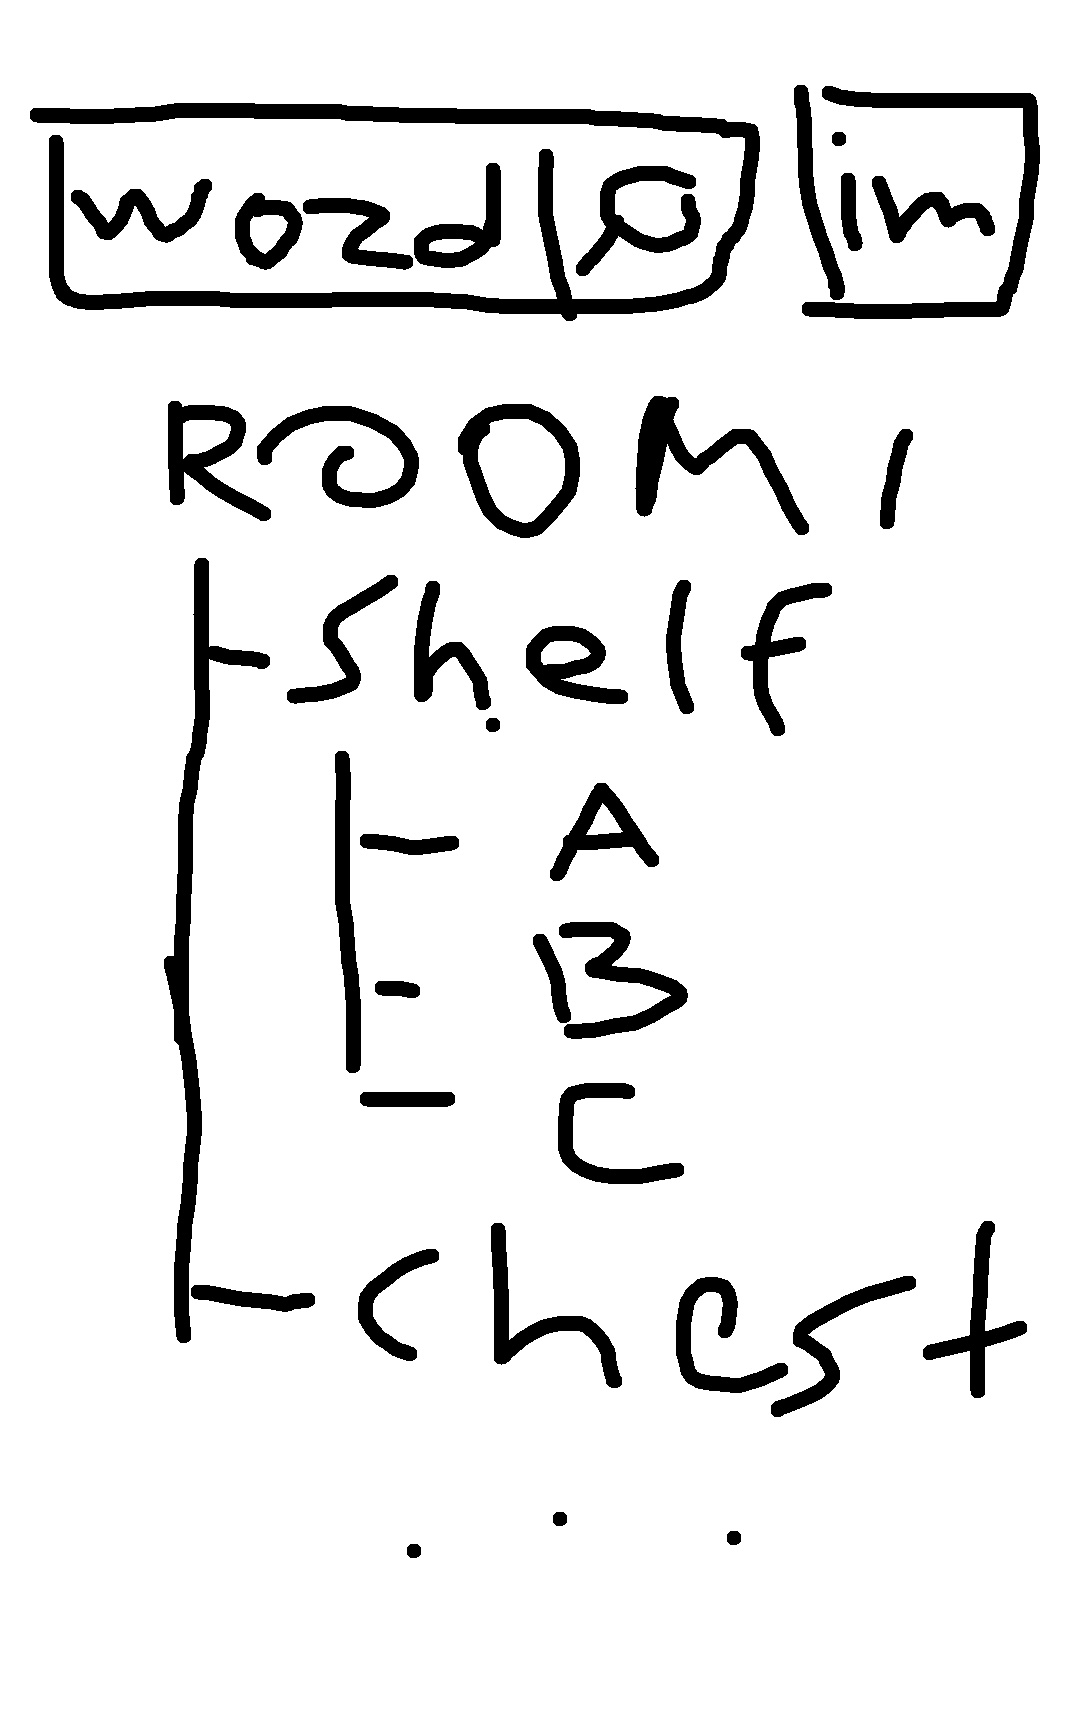 word im
ROOM 1
Shelf
A
B
C
Chest
...